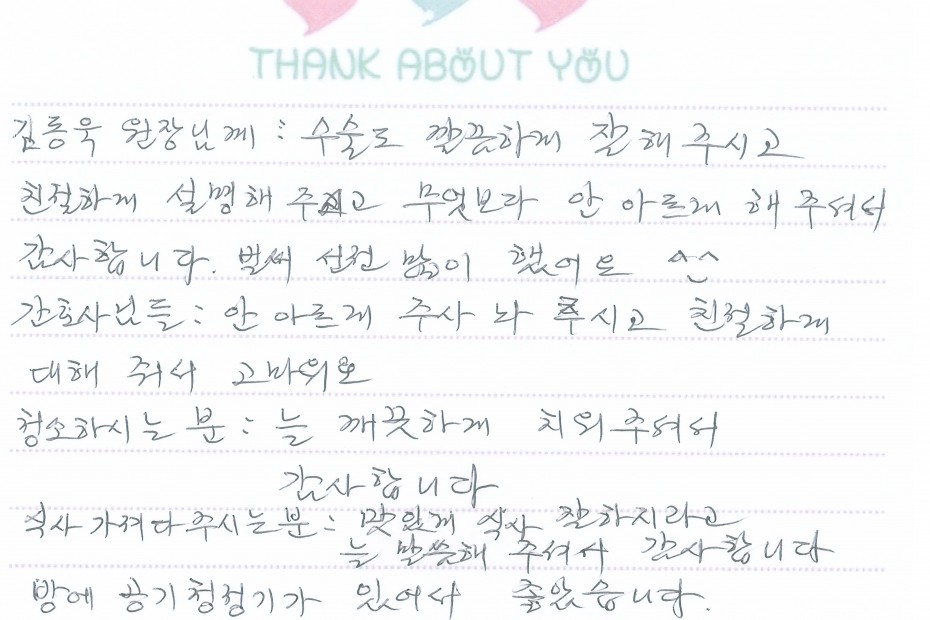 THANK ABOUT YOU
김동욱 원장님께 : 수술도 깔끔하게 잘 해 주시고
친절하게 설명해 주시고 무엇보다 안 아르게 해 주셔서
감사합니다. 벌써 선전 많이 했어요 ^^
간호사님들 : 안 아르게 주사 놔 주시고 친절하게
대해 줘서 고마워요
청소하시는 분 : 늘 깨끗하게 치워주셔서
감사합니다
식사 가져다주시는분 : 맛있게 식사 잘하지라고
늘 말씀해 주셔서 감사합니다
방에 공기청정기가 있어서 좋았습니다.